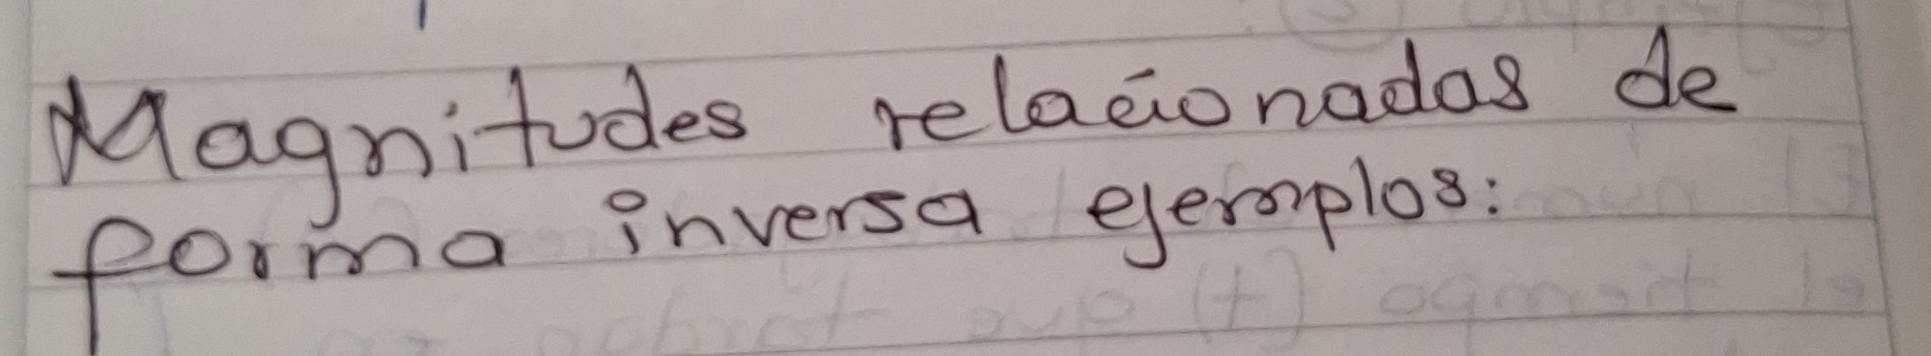 Magnitudes relacionadas de
forma inversa ejemplos: